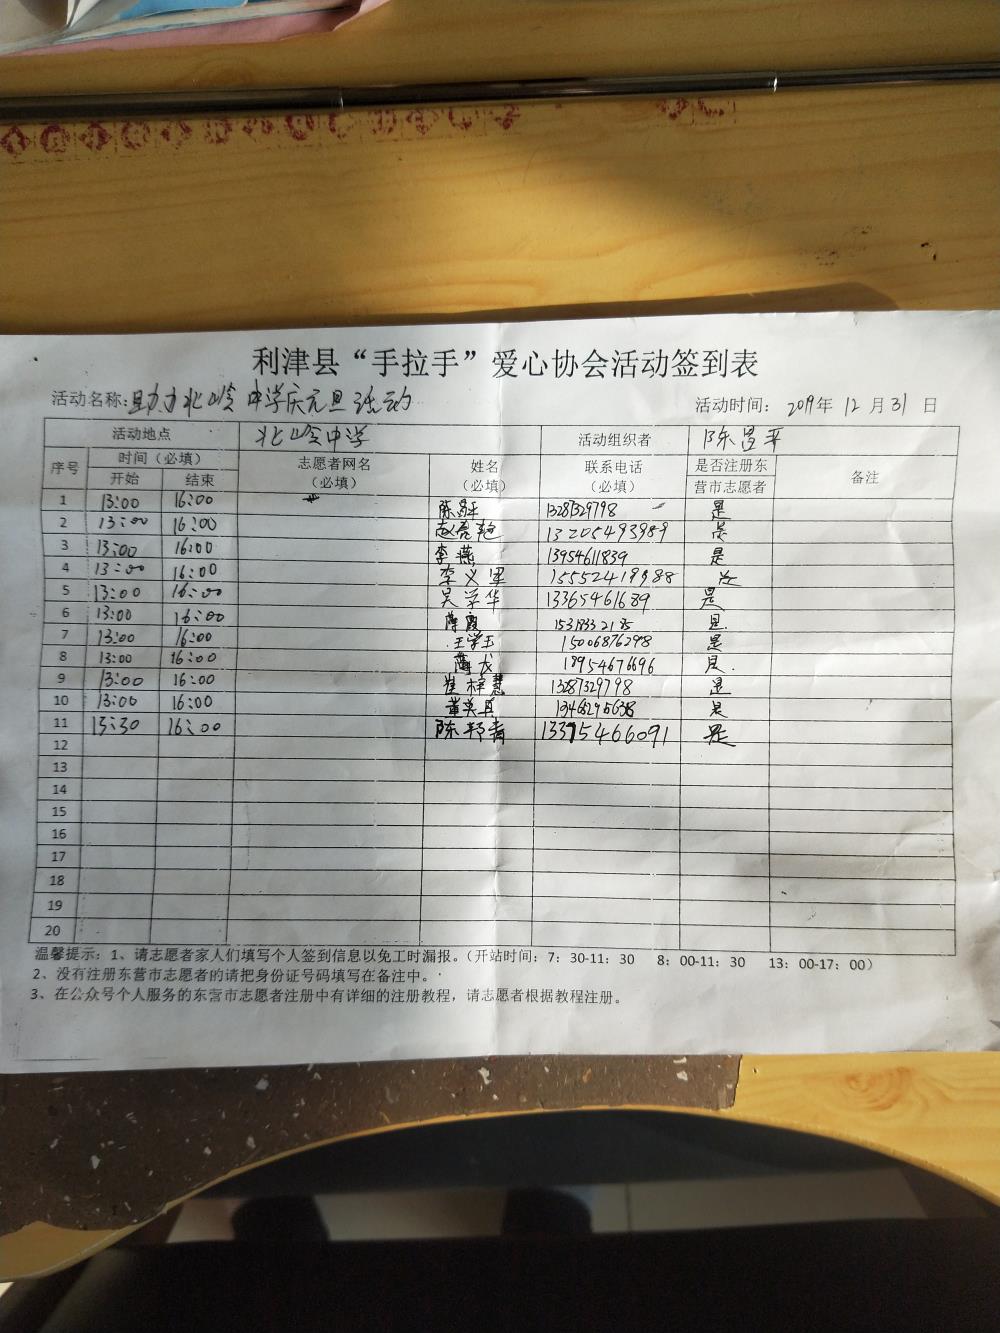 利津县“手拉手”爱心协会活动签到表
活动名称:助力北岭中学庆元旦活动 活动时间: 2019年 12 月 31 日
活动地点 北岭中学 活动组织者 陈昌平
序号 时间（必填） 志愿者网名（必填） 姓名（必填） 联系电话（必填） 是否注册东营市志愿者 备注
开始 结束
1 13:00 16:00 陈昌平 13287329798 是
2 13:00 16:00 13205493989 是
3 13:00 16:00 李燕 13954611839 是
4 13:00 16:00 李义 15552419988 是
5 13:00 16:00 吴学华 13365461689 是
6 13:00 16:00 薄霞 是
7 13:00 16:00 王学玉 15006876298 是
8 13:00 16:00 薄龙 18954676696 是
9 13:00 16:00 崔梓慧 13287329798 是
10 13:00 16:00 是
11 13:30 16:00 陈 13375466091 是
12
13
14
15
16
17
18
19
20
温馨提示：1、请志愿者家人们填写个人签到信息以免工时漏报。（开站时间：7：30-11：30 8：00-11：30 13：00-17：00）
2、没有注册东营市志愿者的请把身份证号码填写在备注中。
3、在公众号个人服务的东营市志愿者注册中有详细的注册教程，请志愿者根据教程注册。